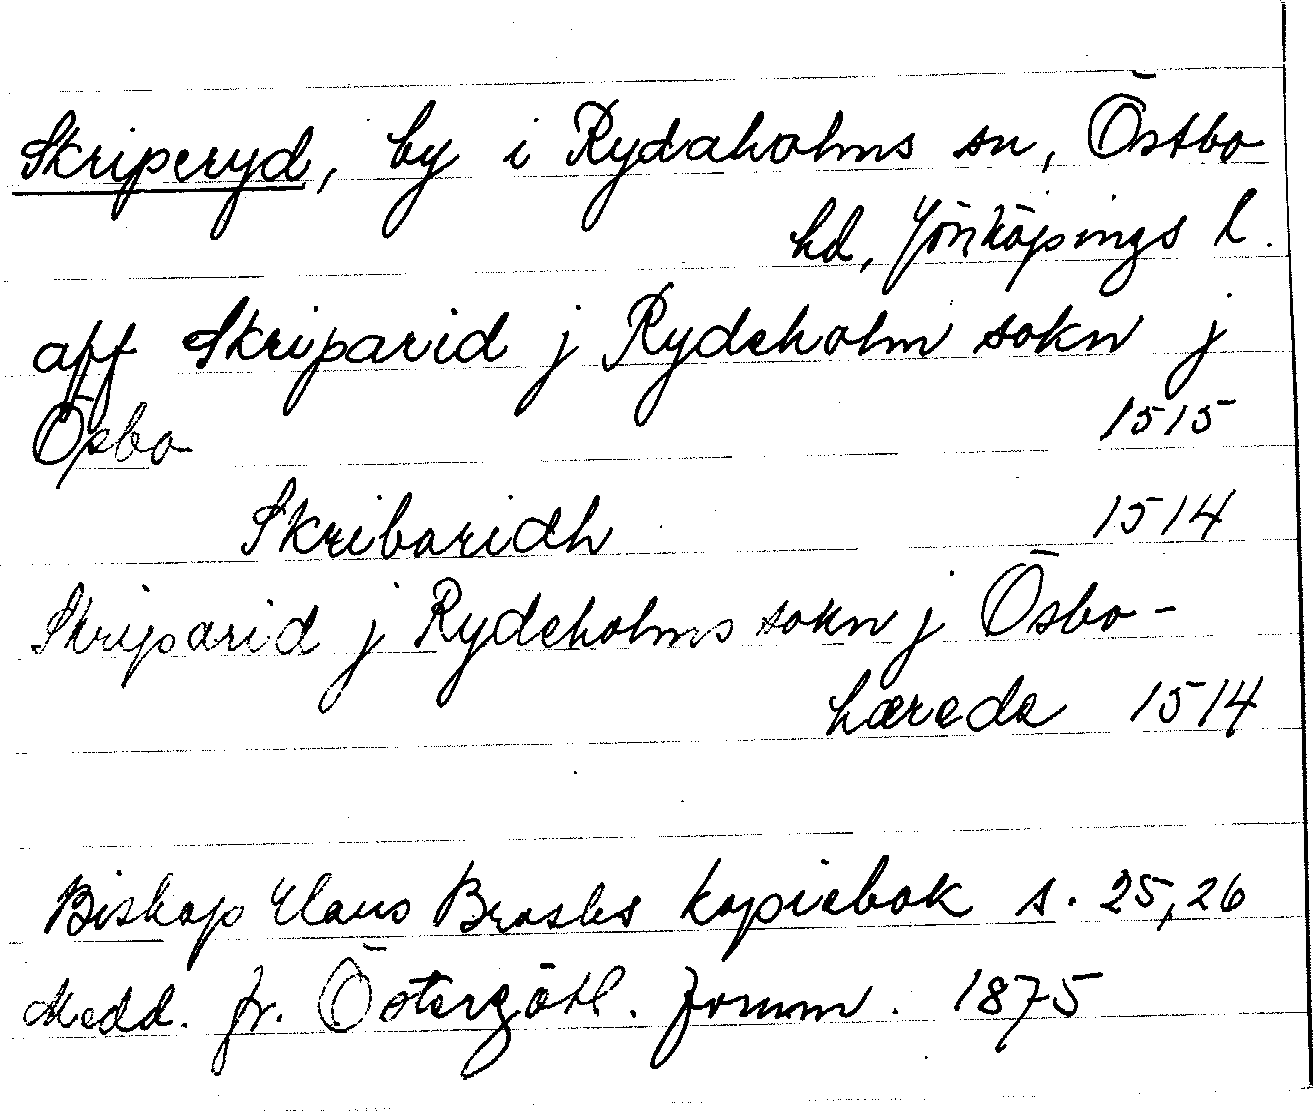 Skriperyd, by i Rydaholms sn, Östbo
hd, Jönköpings l.
aff Skriparid j Rydeholm sokn j
Ösbo 1515
Skribaridh 1514
Skriparid j Rydeholms sokn j Ösbo-
hærede 1514
Biskop Claus Brasks kopiebok s. 25,26
Medd. fr. Östergötl. fornm. 1875